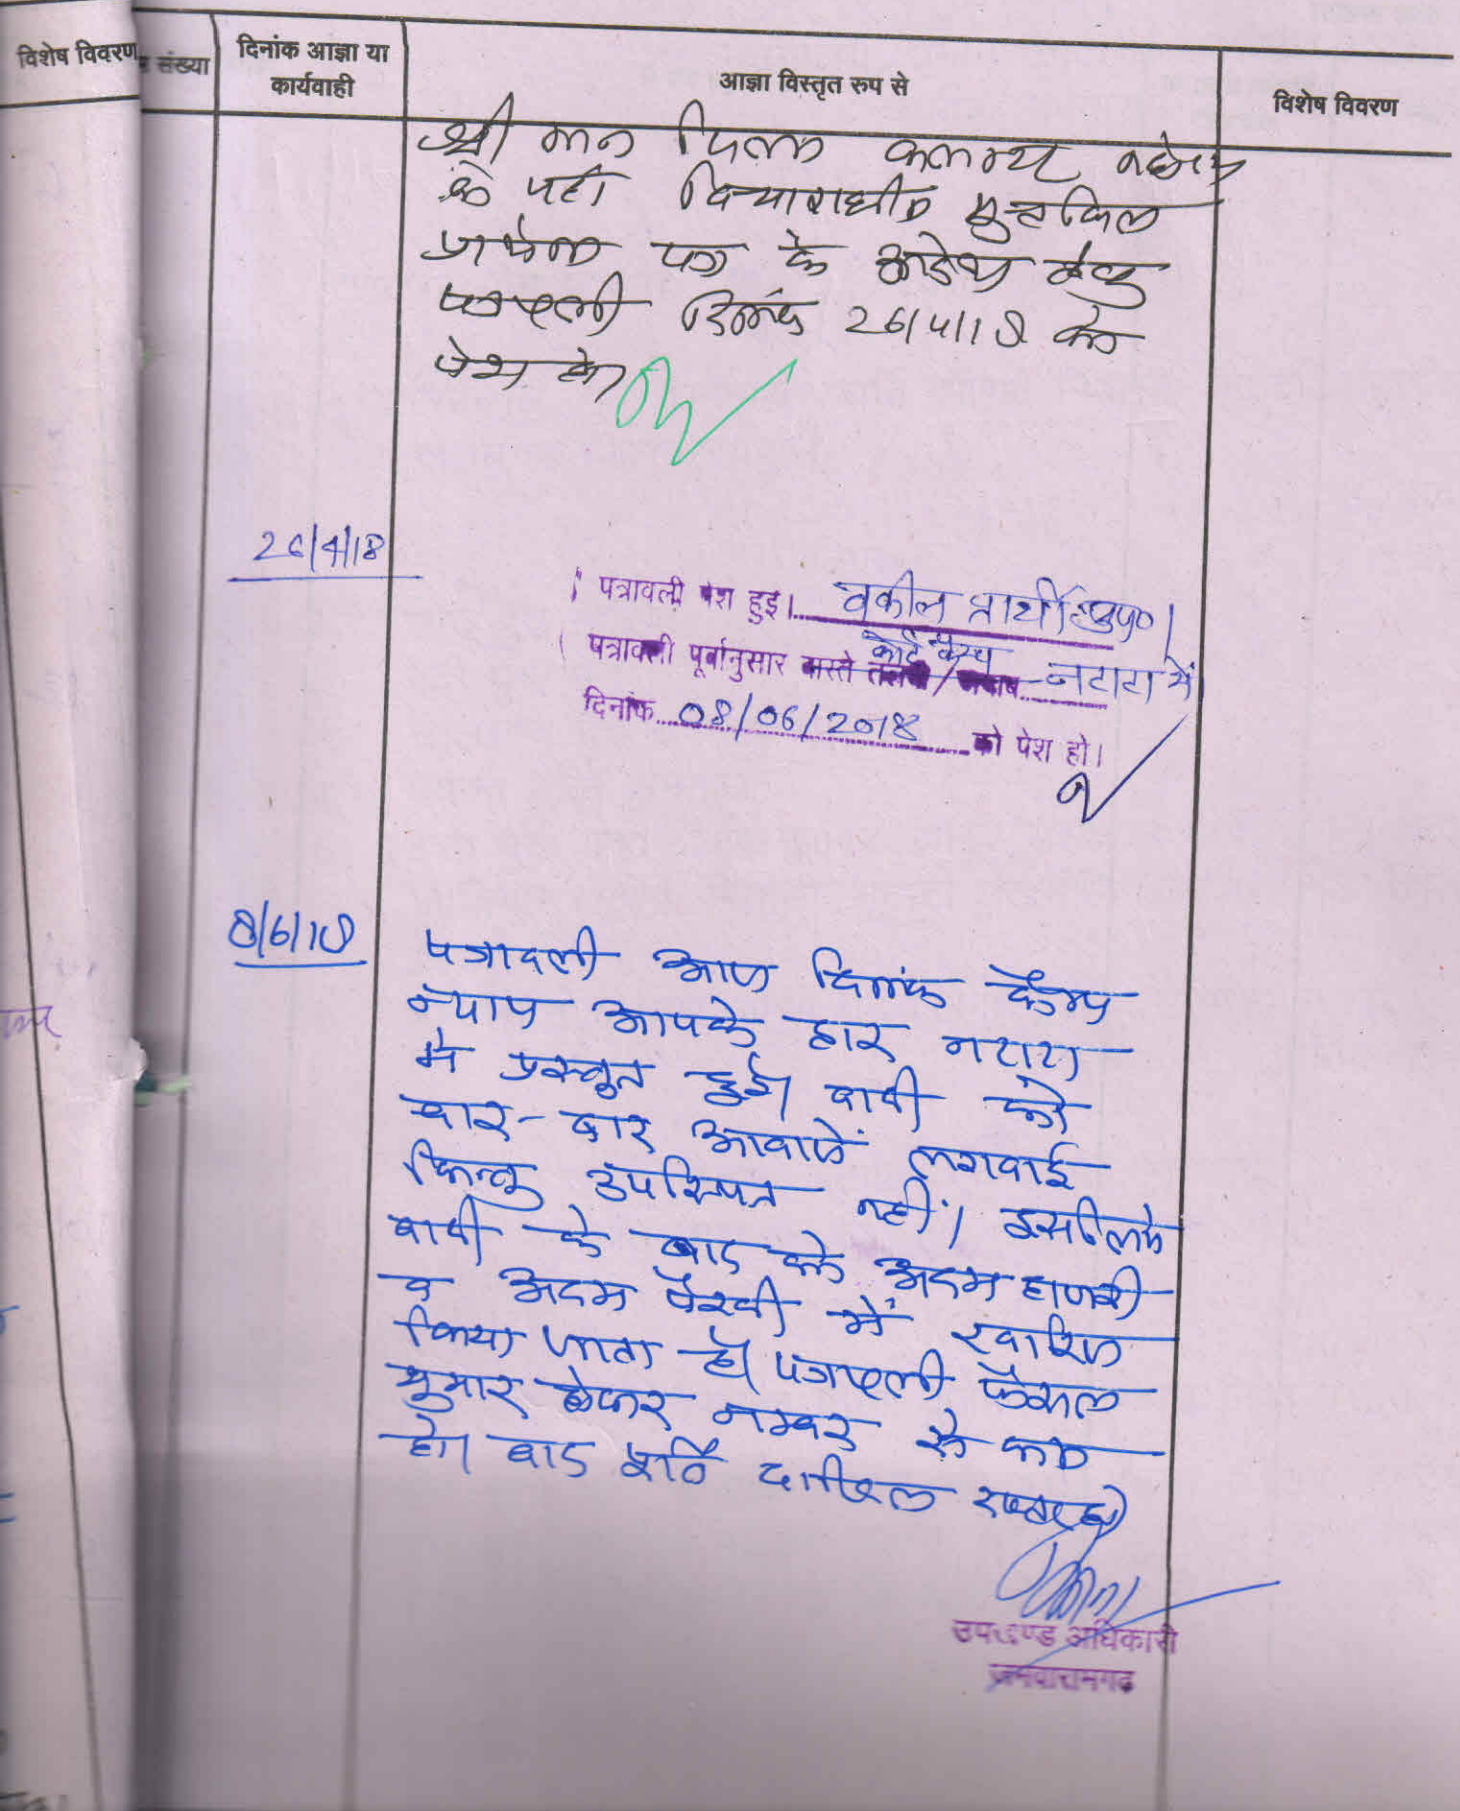 विशेष विवरण
संख्या
दिनांक आज्ञा या
कार्यवाही
आज्ञा विस्तृत रुप से
विशेष विवरण
श्री मान जिला कलक्टर महोदय
के यहाँ विचाराधीन मुन्तकिल
पत्र के आदेश हेतु
पत्रावली दिनांक 26/4/18 को
पेश हो।
26/4/18
पत्रावली पेश हुई। वकील प्रार्थी उप०।
पत्रावली पूर्वानुसार वास्ते कोर्ट कैम्प नटाटा में
दिनांक 08/06/2018 को पेश हो।
8/6/18
पत्रावली आज दिनांक कैम्प
न्याय आपके द्वार नटाटा
में प्रस्तुत हुई। वादी को
बार-बार आवाजें लगवाई
किन्तु उपस्थित नहीं। इसलिये
वादी के वाद को अदम हाजरी
व अदम पैरवी में खारिज
किया जाता है। पत्रावली फैसल
शुमार होकर नम्बर से कम
हो। बाद पूर्ति दाखिल दफ्तर हो।
उपखण्ड अधिकारी
जमवारामगढ़